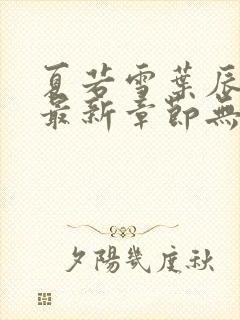 夏若雪葉辰
最新章節無
夕陽幾度秋